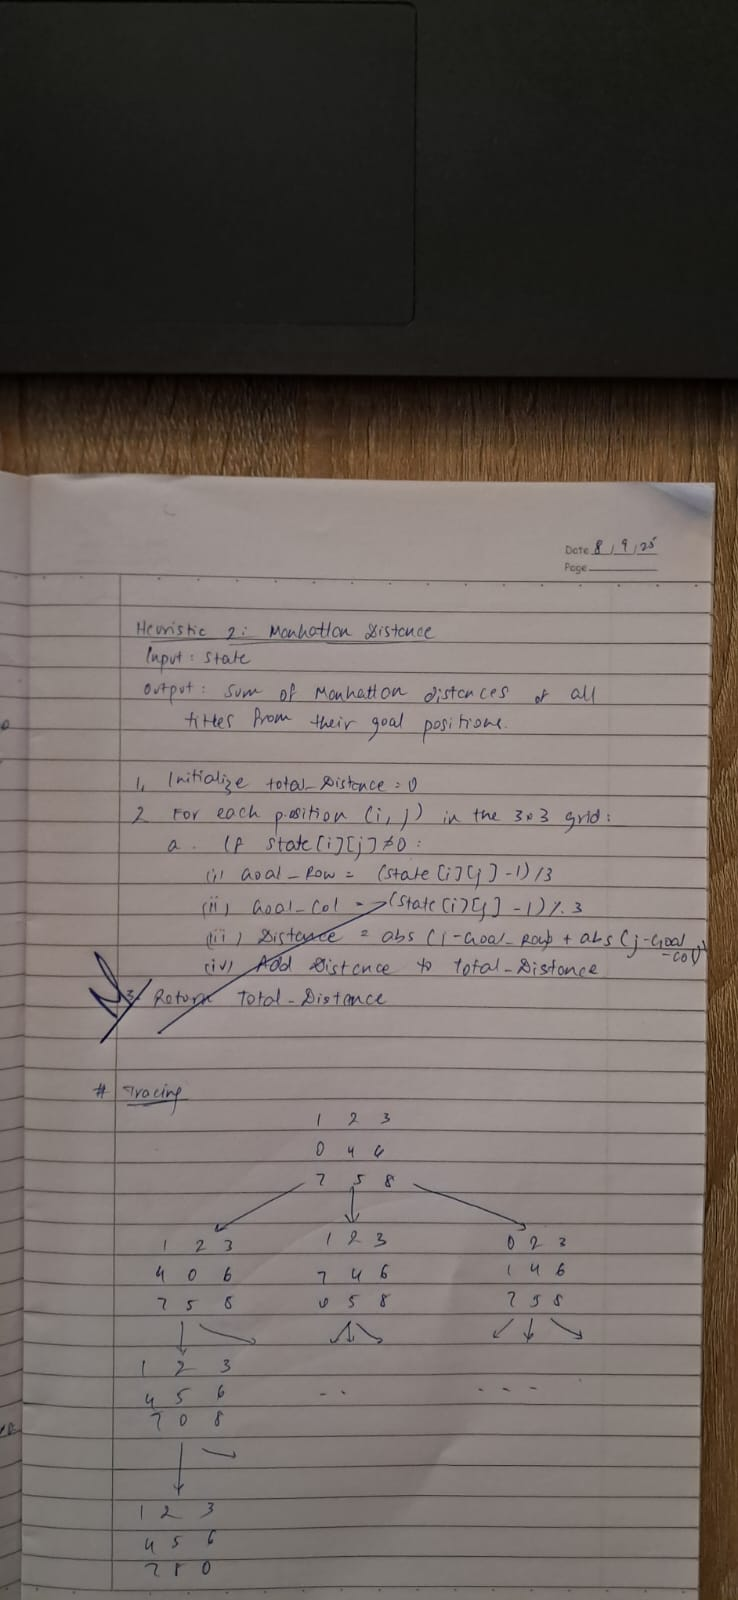 Date 8/9/25
Page
Heuristic 2: Manhatton Distance
Input: State
Output: Sum of Manhatton distances of all
titles from their goal positions.
1. Initialize total_Distance = 0
2 For each position (i, j) in the 3x3 grid:
a. If state[i][j] ≠ 0:
(i) Goal_Row = (state[i][j] - 1) / 3
(ii) Goal_Col = (state[i][j] - 1) % 3
(iii) Distance = abs (i - Goal_Row) + abs (j - Goal
-Col)
(iv) Add Distance to total_Distance
3. Return Total_Distance
# Tracing
1 2 3
0 4 6
7 5 8
1 2 3
4 0 6
7 5 8
1 2 3
7 4 6
0 5 8
0 2 3
1 4 6
7 5 8
1 2 3
4 5 6
7 0 8
- -
- - - -
1 2 3
4 5 6
7 8 0